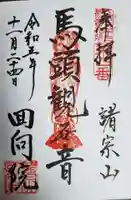 奉拝
諸宗山
馬頭観世音
回向院
令和五年
十一月二十四日